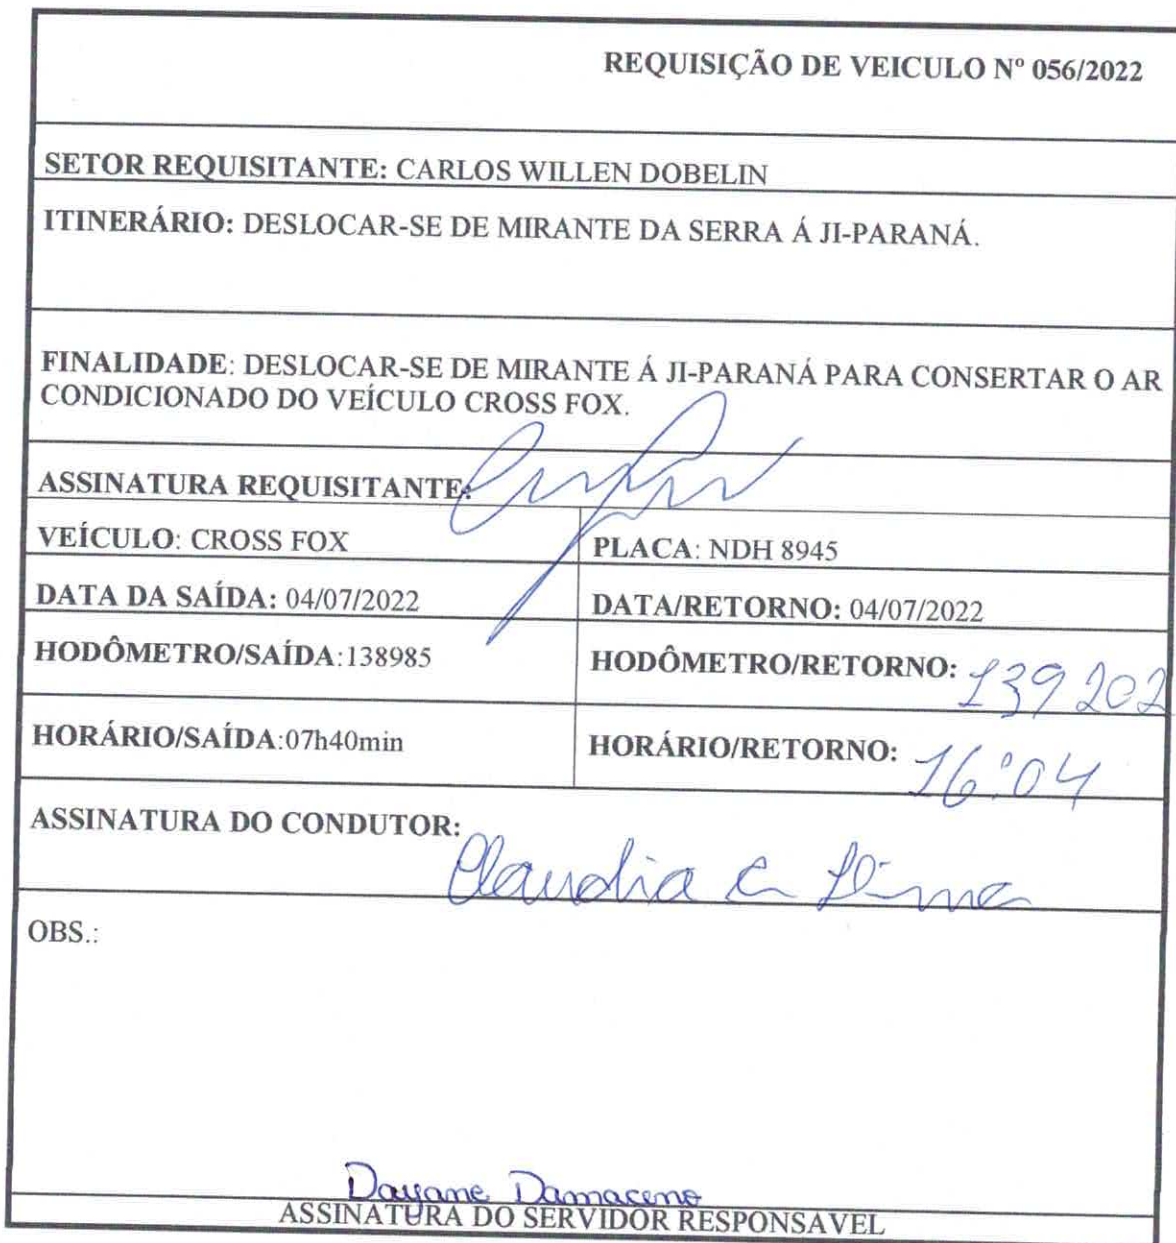 REQUISIÇÃO DE VEICULO Nº 056/2022
SETOR REQUISITANTE: CARLOS WILLEN DOBELIN
ITINERÁRIO: DESLOCAR-SE DE MIRANTE DA SERRA Á JI-PARANÁ.
FINALIDADE: DESLOCAR-SE DE MIRANTE Á JI-PARANÁ PARA CONSERTAR O AR
CONDICIONADO DO VEÍCULO CROSS FOX.
ASSINATURA REQUISITANTE:
VEÍCULO: CROSS FOX PLACA: NDH 8945
DATA DA SAÍDA: 04/07/2022 DATA/RETORNO: 04/07/2022
HODÔMETRO/SAÍDA:138985 HODÔMETRO/RETORNO: 139202
HORÁRIO/SAÍDA:07h40min HORÁRIO/RETORNO: 16:04
ASSINATURA DO CONDUTOR:
Claudia C Lima
OBS.:
Dayane Damaceno
ASSINATURA DO SERVIDOR RESPONSAVEL